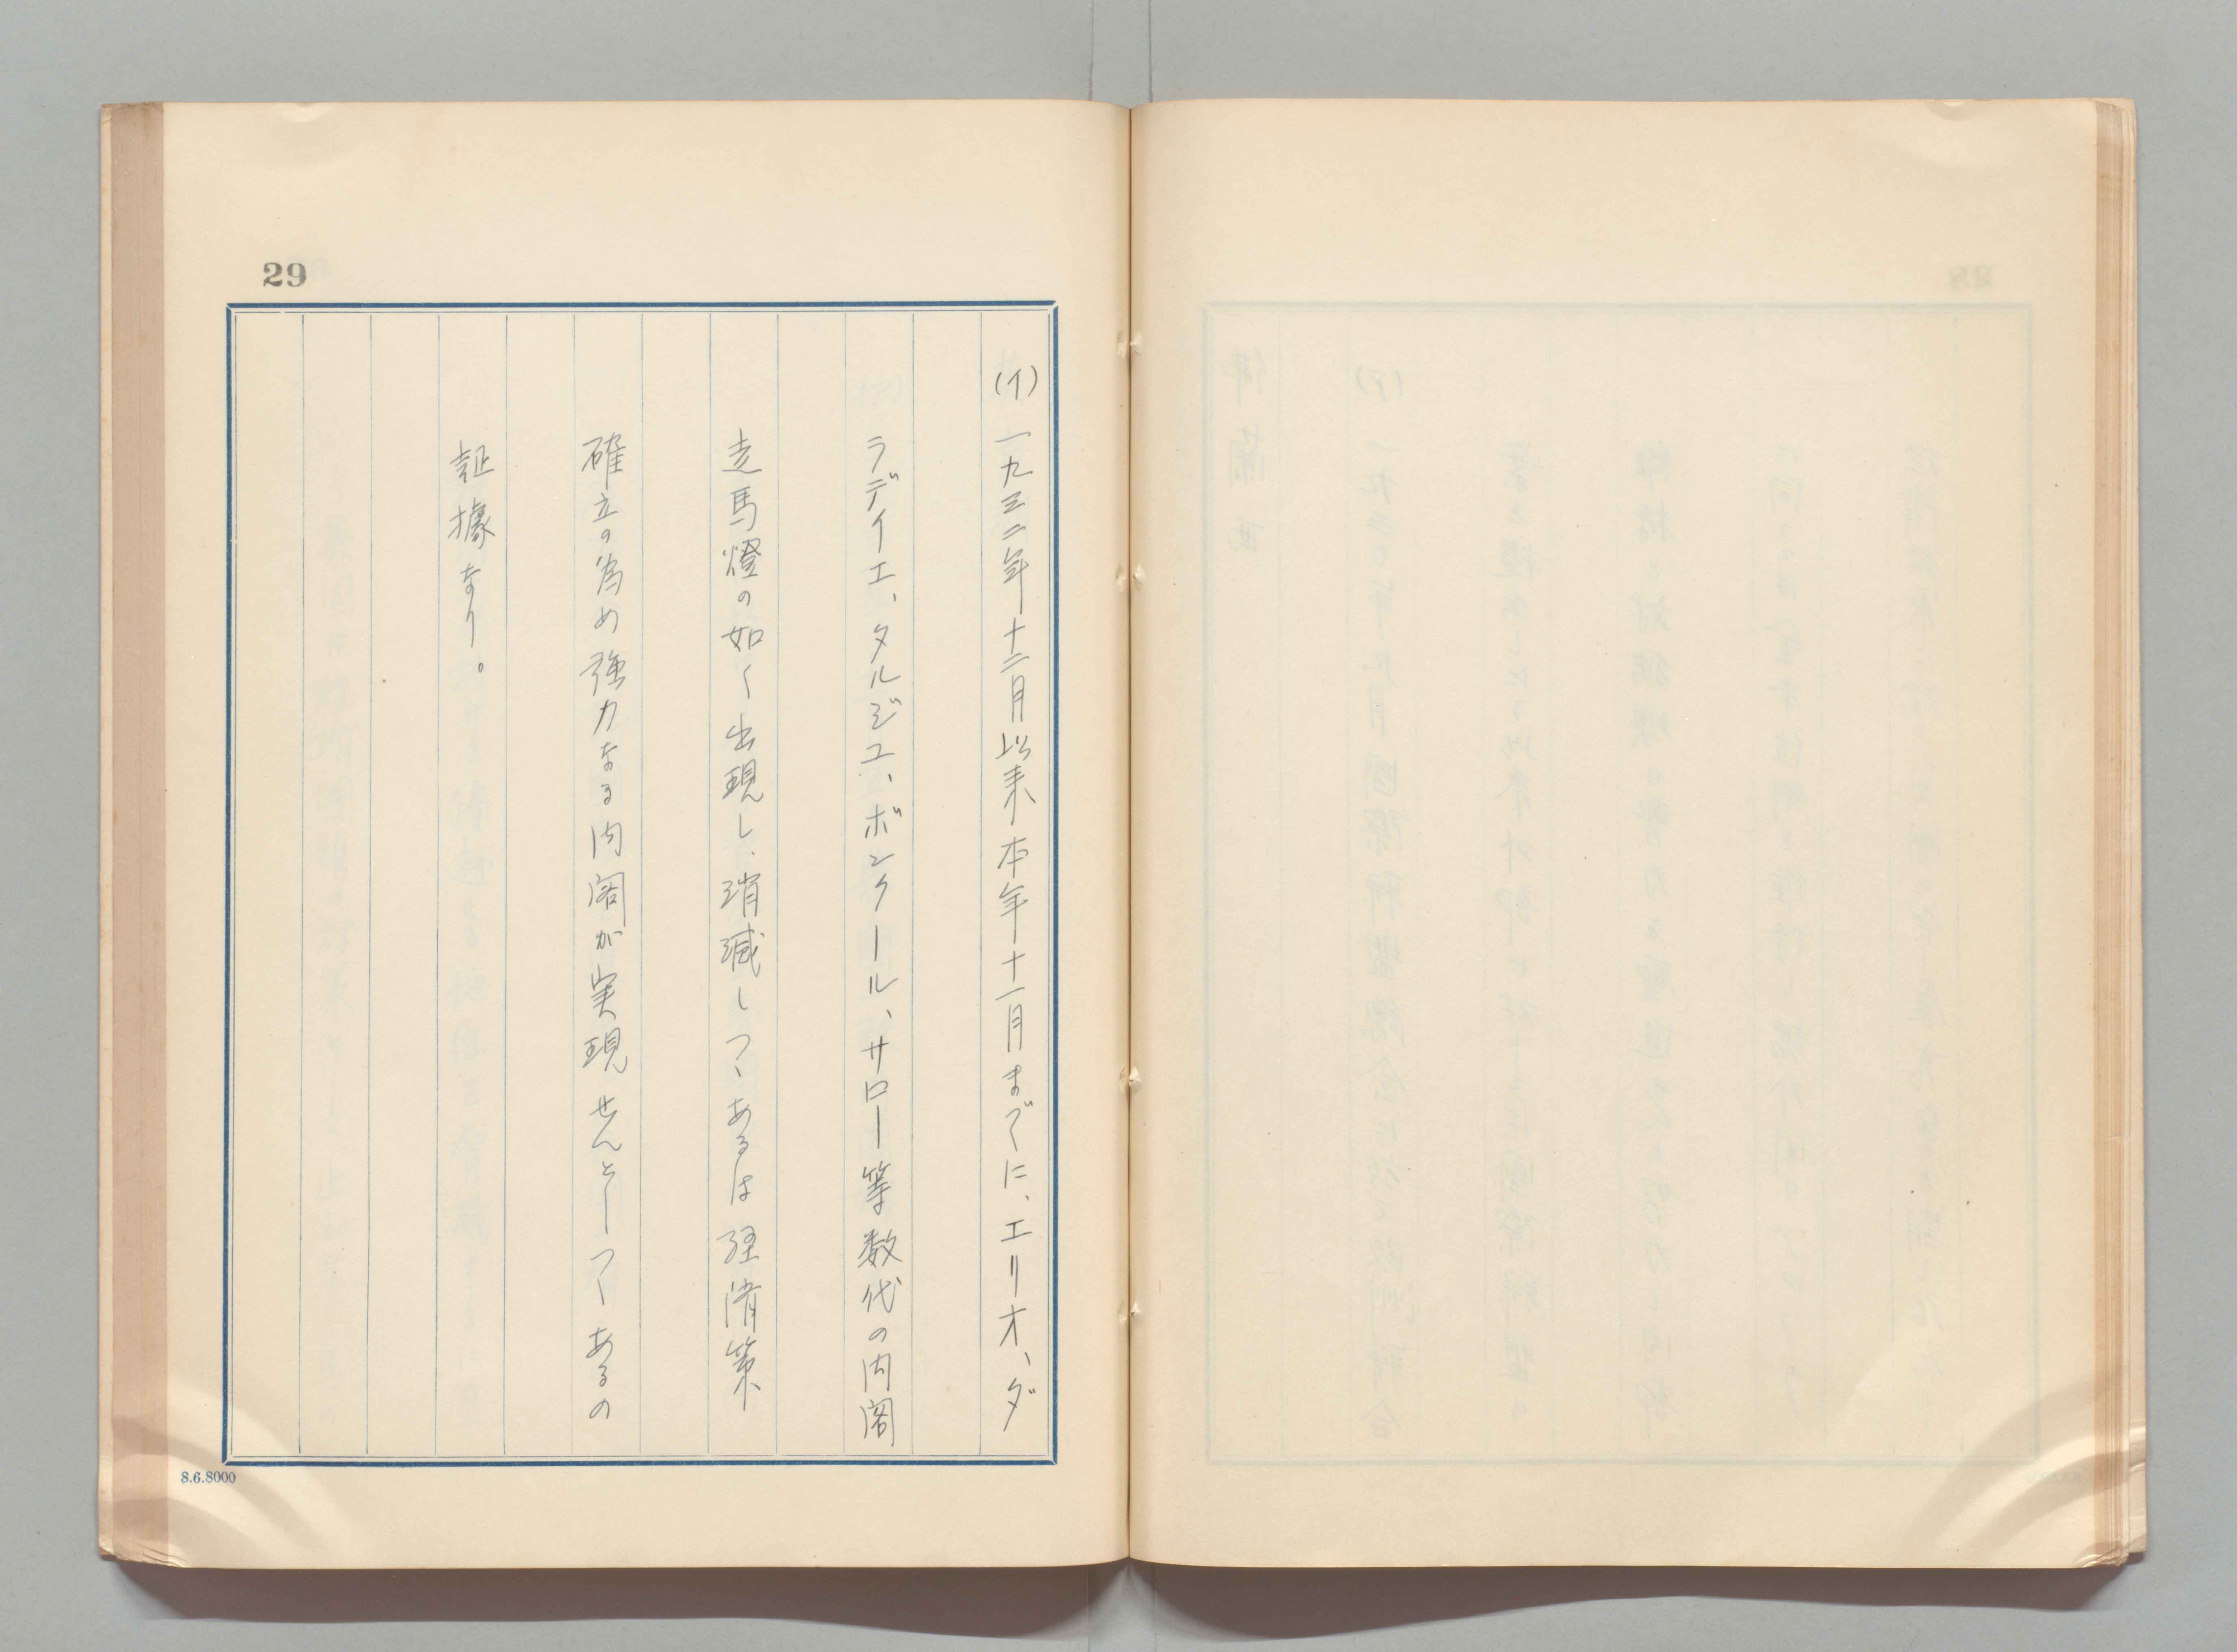 29
(イ)一九三二年十二月以来本年十一月までに、エリオ、ダ
ラデイエ、タルジユ、ボンクール、サロー等数代の内閣
走馬燈の如く出現し、消滅しつゝあるは経済策
確立の為め強力なる内閣が実現せんとしつゝあるの
証據なり。
8.6.8000